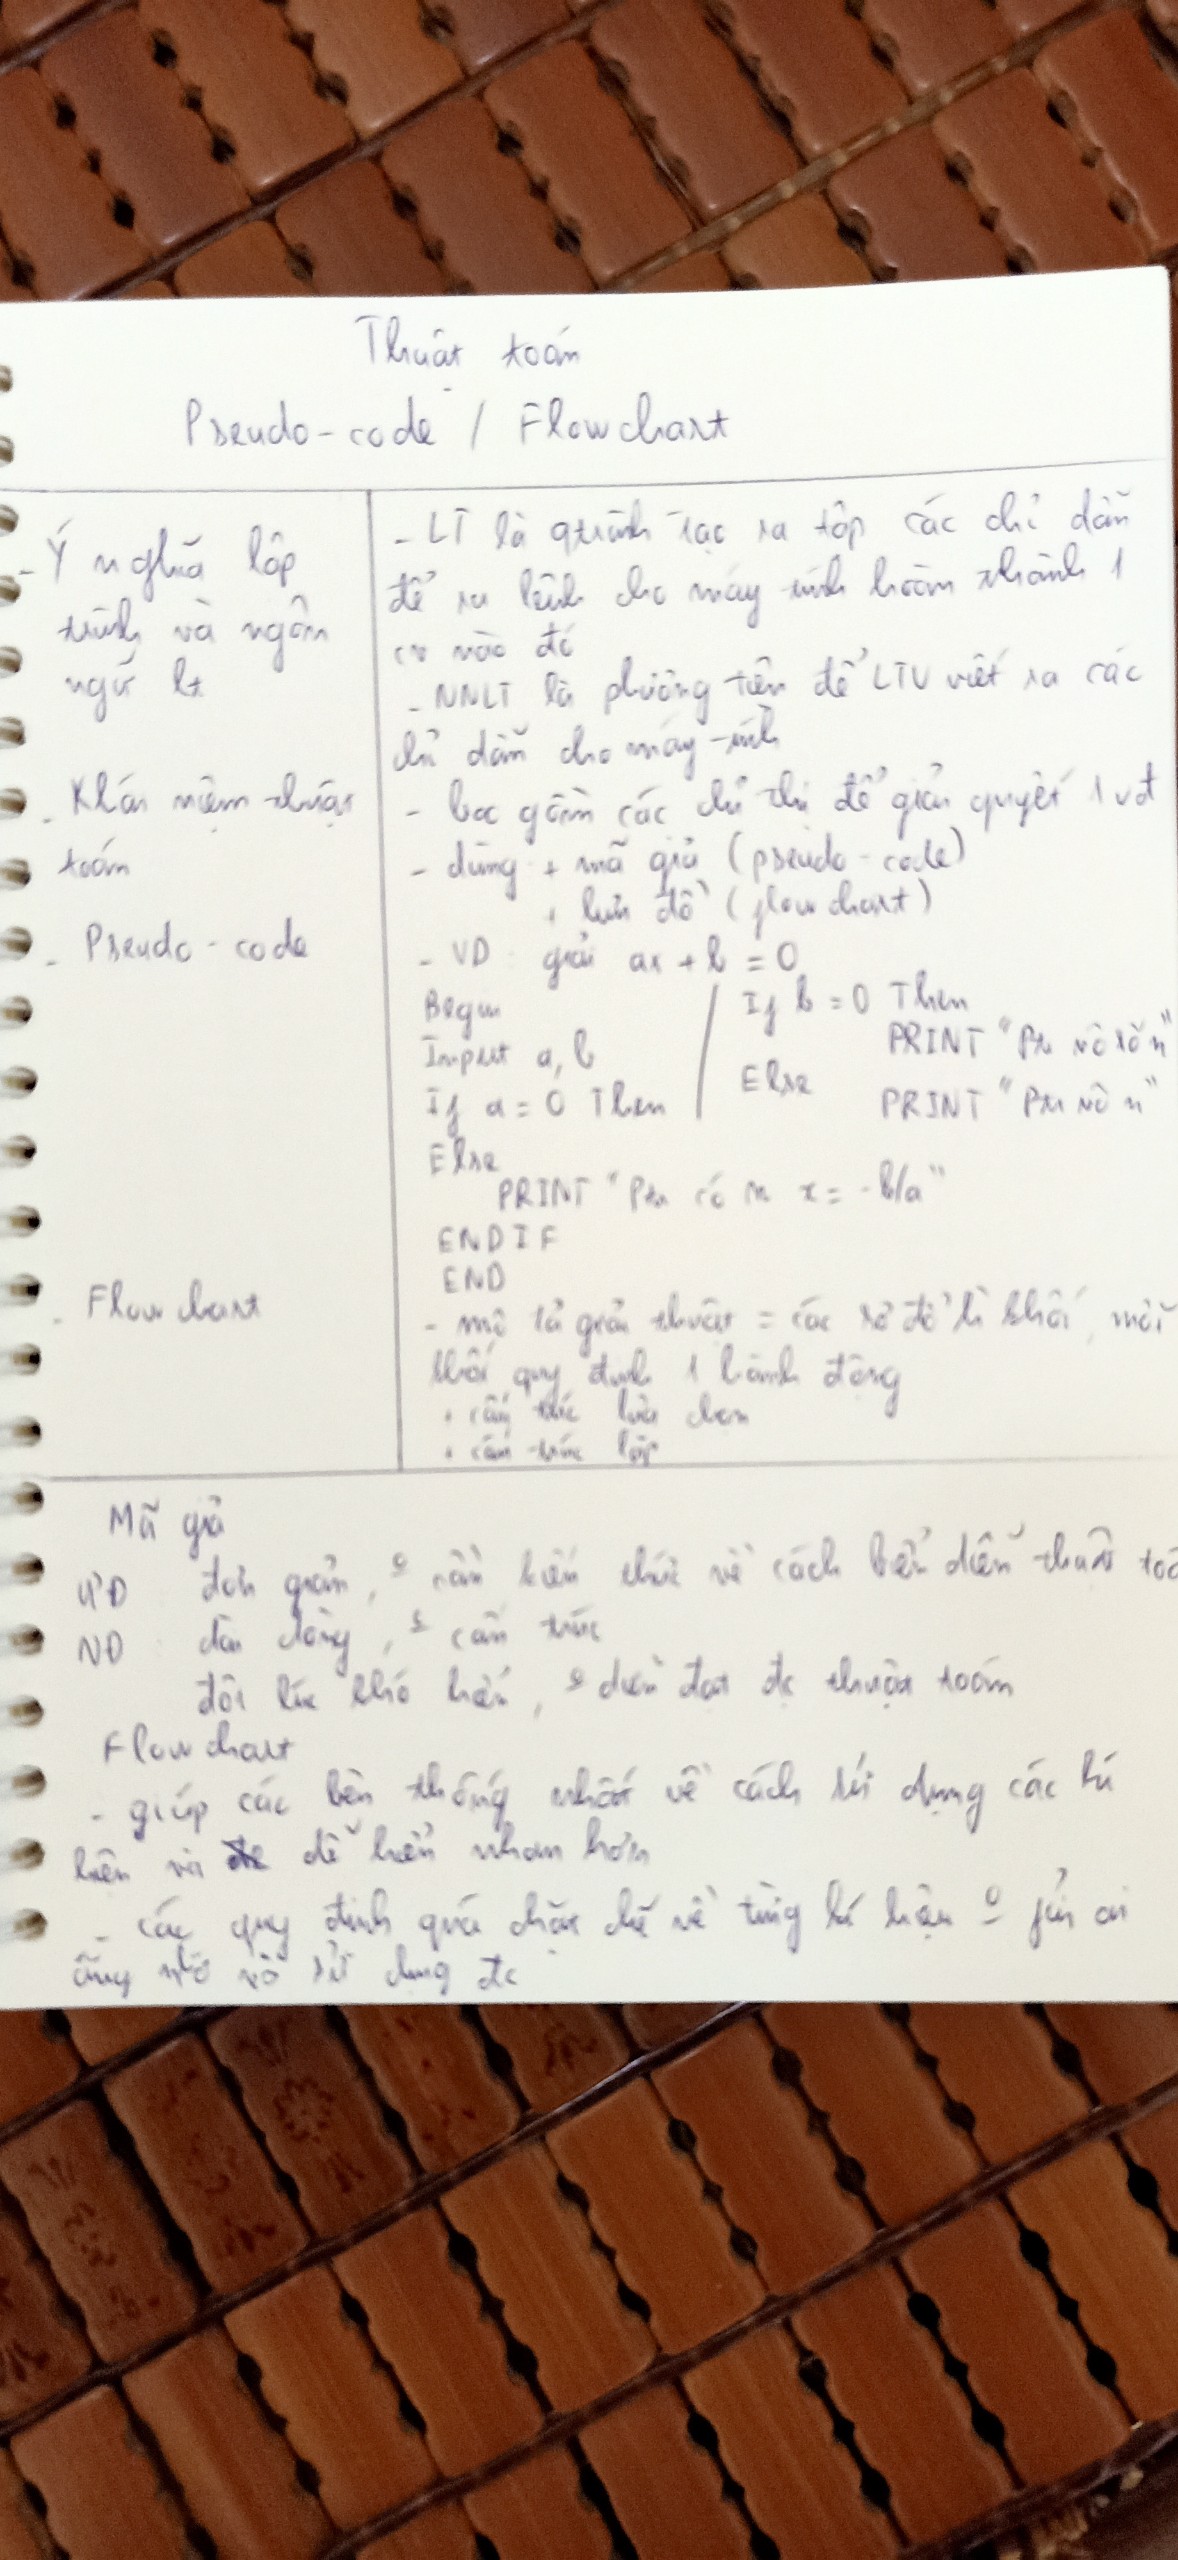 Thuật toán
Pseudo-code / Flowchart
- Ý nghĩa lập
trình và ngôn
ngữ lt
- Khái niệm thuật
toán
- Pseudo-code
- Flowchart
- LT là qtrình tạo ra tập các chỉ dẫn
để ra lệnh cho máy tính hoàn thành 1
cv nào đó
- NNLT là phương tiện để LTV viết ra các
chỉ dẫn cho máy tính
- bao gồm các chỉ thị để giải quyết 1 vđ
- dùng + mã giả (pseudo-code)
+ lưu đồ (flowchart)
- VD: giải ax + b = 0
Begin
Input a, b
If a = 0 Then
If b = 0 Then
PRINT "Ptr vô số n"
Else
PRINT "Ptr vô n"
Else
PRINT "Ptr có n x = -b/a"
ENDIF
END
- mô tả giải thuật = các sơ đồ khối, mỗi
khối quy định 1 hành động
+ cấu trúc lựa chọn
+ cấu trúc lặp
Mã giả
ƯĐ đơn giản, cần kiến thức về cách biểu diễn thuật toá
NĐ : dài dòng, cấu trúc
đôi lúc khó hiểu, diễn đạt đc thuật toán
Flowchart
- giúp các bên thống nhất về cách sử dụng các kí
hiệu và dễ hiểu nhanh hơn
- các quy định quá chặt chẽ về từng kí hiệu º phải ai
cũng nhớ và sử dụng đc